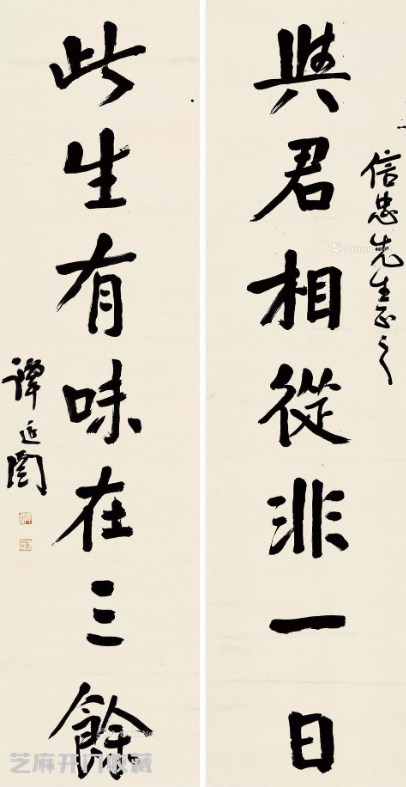 信忠先生正之
與君相從非一日
此生有味在三餘
譚延闓
芝麻开门收藏